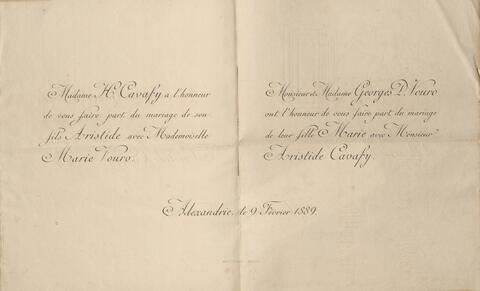 Madame H. Cavafy a l'honneur
de vous faire part du mariage de son
fils Aristide avec Mademoiselle
Marie Vouro.
Monsieur & Madame Georges D. Vouro
ont l'honneur de vous faire part du mariage
de leur fille Marie avec Monsieur
Aristide Cavafy.
Alexandrie, le 9 Février 1889.